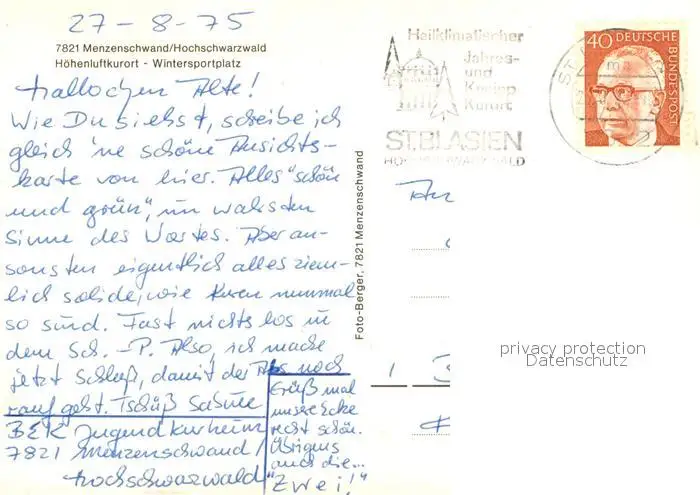 27-8-75
7821 Menzenschwand/Hochschwarzwald
Höhenluftkurort - Wintersportplatz
Hallochen Alte!
Wie Du siehst, schreibe ich
gleich 'ne schöne Ansichts-
karte von hier. Alles "schön
und grün", im wahrsten
Sinne des Wortes. Aber an-
sonsten eigentlich alles ziem-
lich solide, wie Kuren nunmal
so sind. Fast nichts los in
dem Sch.-P. Also, ich mache
jetzt Schluß, damit der Abs noch
rauf geht. Tschüß Sabine
BEK Jugendkurheim
7821 Menzenschwand/
Hochschwarzwald
Grüß mal
unsere Ecke
recht schön.
Übrigens
auch die...
"Zwei!"
Foto-Berger, 7821 Menzenschwand
Heilklimatischer
Jahres-
und
Kneipp
Kurort
ST.BLASIEN
HOCHSCHWARZWALD
40 DEUTSCHE
BUNDESPOST
An
privacy protection
Datenschutz